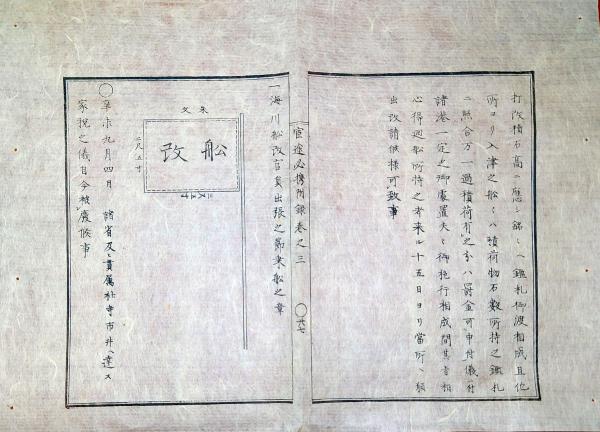 打改積石高ニ應シ銘々ヘ鑑札御渡相成且他
所ヨリ入津之船々ハ積荷物石数所持之鑑札
ニ照合万一過積荷有之分ハ罰金可申付儀ハ付
諸港一定之御處置夫々御施行相成間其者相
心得廻船所持之者来ル十五日ヨリ当所ヘ願
出改請候様可致事
官途必携附録巻之三
○廿七
一海川船改官員出張之節乗船之章
朱文
船改
二尺五寸
○辛未九月四日 諸省及ヒ貫属社寺市井ヘ達ス
家税之儀自今被廢候事